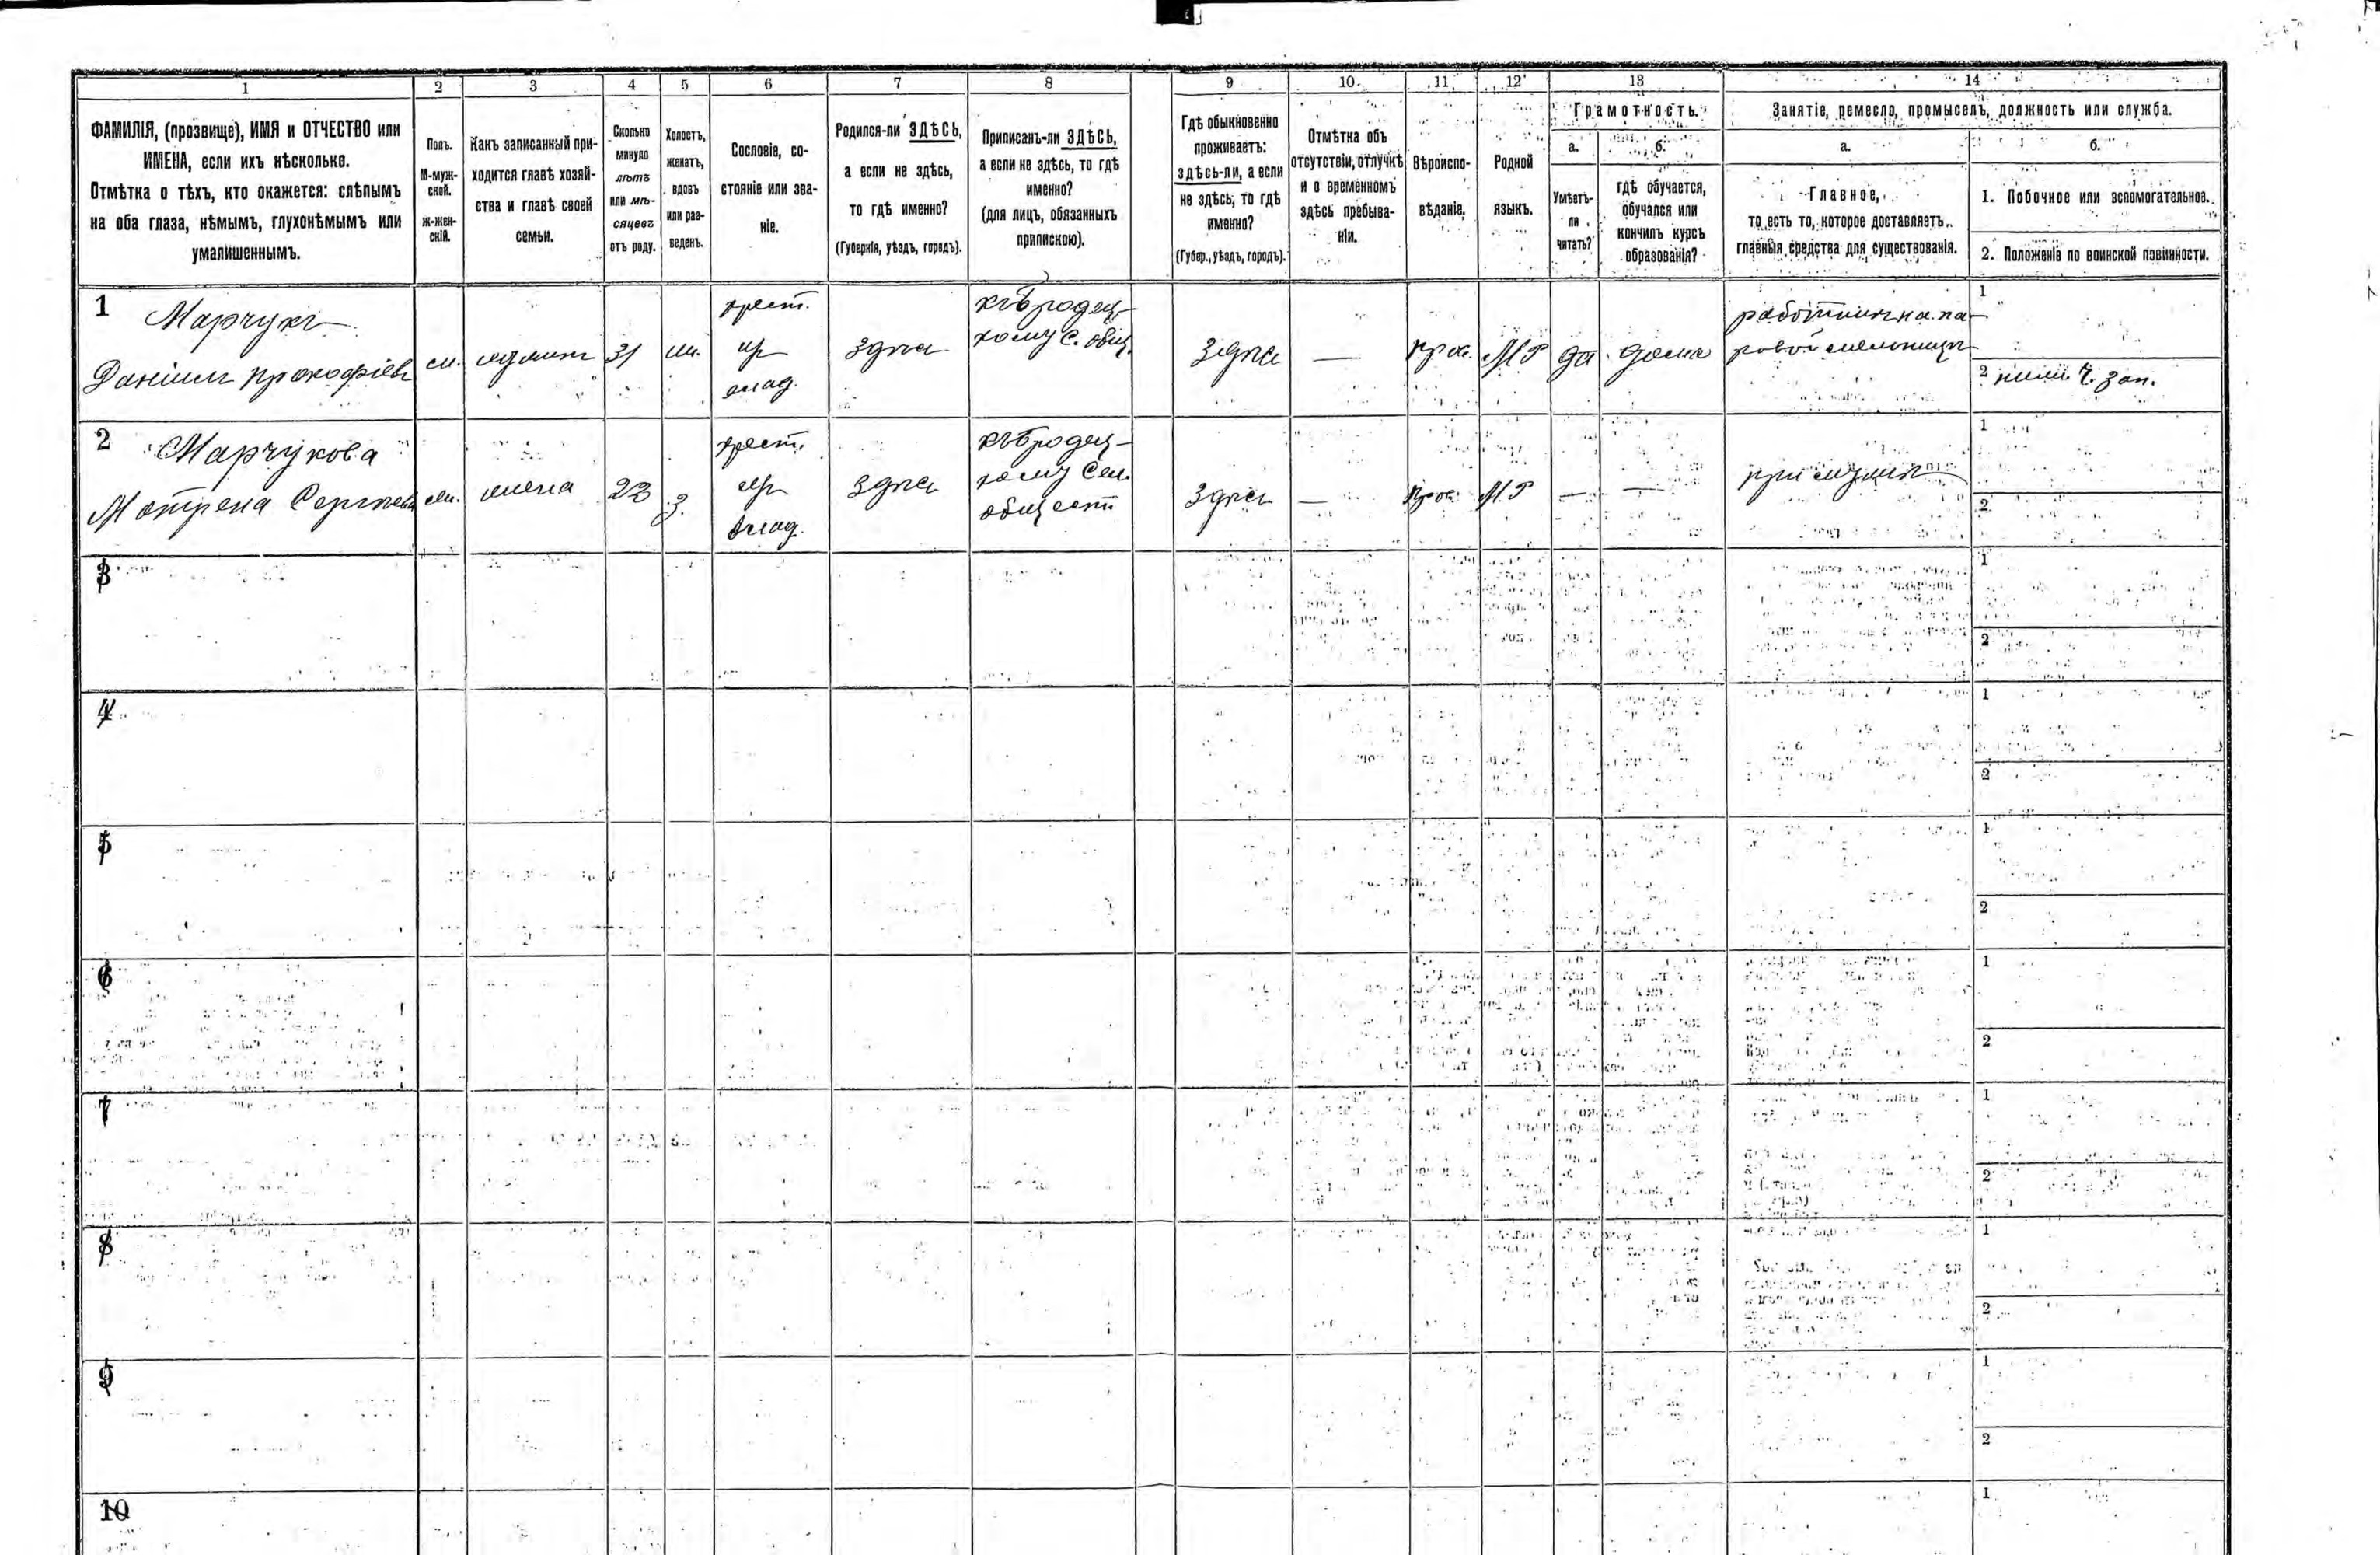 1 2 3 4 5 6 7 8 9 10 11 12 13 14
ФАМИЛІЯ, (прозвище), ИМЯ и ОТЧЕСТВО или
ИМЕНА, если ихъ нѣсколько.
Отмѣтка о тѣхъ, кто окажется: слѣпымъ
на оба глаза, нѣмымъ, глухонѣмымъ или
умалишеннымъ.
Полъ.
М-муж-
ской.
Ж-жен-
скій.
Какъ записанный при-
ходится главѣ хозяй-
ства и главѣ своей
семьи.
Сколько
минуло
лѣтъ
или мѣ-
сяцевъ
отъ роду.
Холостъ,
женатъ,
вдовъ
или раз-
веденъ.
Сословіе, со-
стояніе или зва-
ніе.
Родился-ли ЗДѢСЬ,
а если не здѣсь,
то гдѣ именно?
(Губернія, уѣздъ, городъ).
Приписанъ-ли ЗДѢСЬ,
а если не здѣсь, то гдѣ
именно?
(для лицъ, обязанныхъ
припискою).
Гдѣ обыкновенно
проживаетъ:
здѣсь-ли, а если
не здѣсь, то гдѣ
именно?
(Губер., уѣздъ, городъ).
Отмѣтка объ
отсутствіи, отлучкѣ
и о временномъ
здѣсь пребыва-
ніи.
Вѣроиспо-
вѣданіе.
Родной
языкъ.
Грамотность.
а.
Умѣетъ-
ли
читать?
б.
гдѣ обучается,
обучался или
кончилъ курсъ
образованія?
Занятіе, ремесло, промыселъ, должность или служба.
а.
Главное,
то есть то, которое доставляетъ
главныя средства для существованія.
б.
1. Побочное или вспомогательное.
2. Положеніе по воинской повинности.
1
Марчукъ
Даніилъ Прокофіевъ
м.
31
крест.
влад.
здѣсь
скому С. общ.
здѣсь
—
прав.
М Р
да
дома
работникъ на па-
ровой мельницѣ
1
2
2
Марчукова
Мотрена Сергѣева
жена
23
з.
крест.
влад.
здѣсь
скому Сел.
обществ
здѣсь
—
прав.
М. Р
—
—
при мужѣ
1
2
3
1
2
4
1
2
5
1
2
6
1
2
7
1
2
8
1
2
9
1
2
10
1